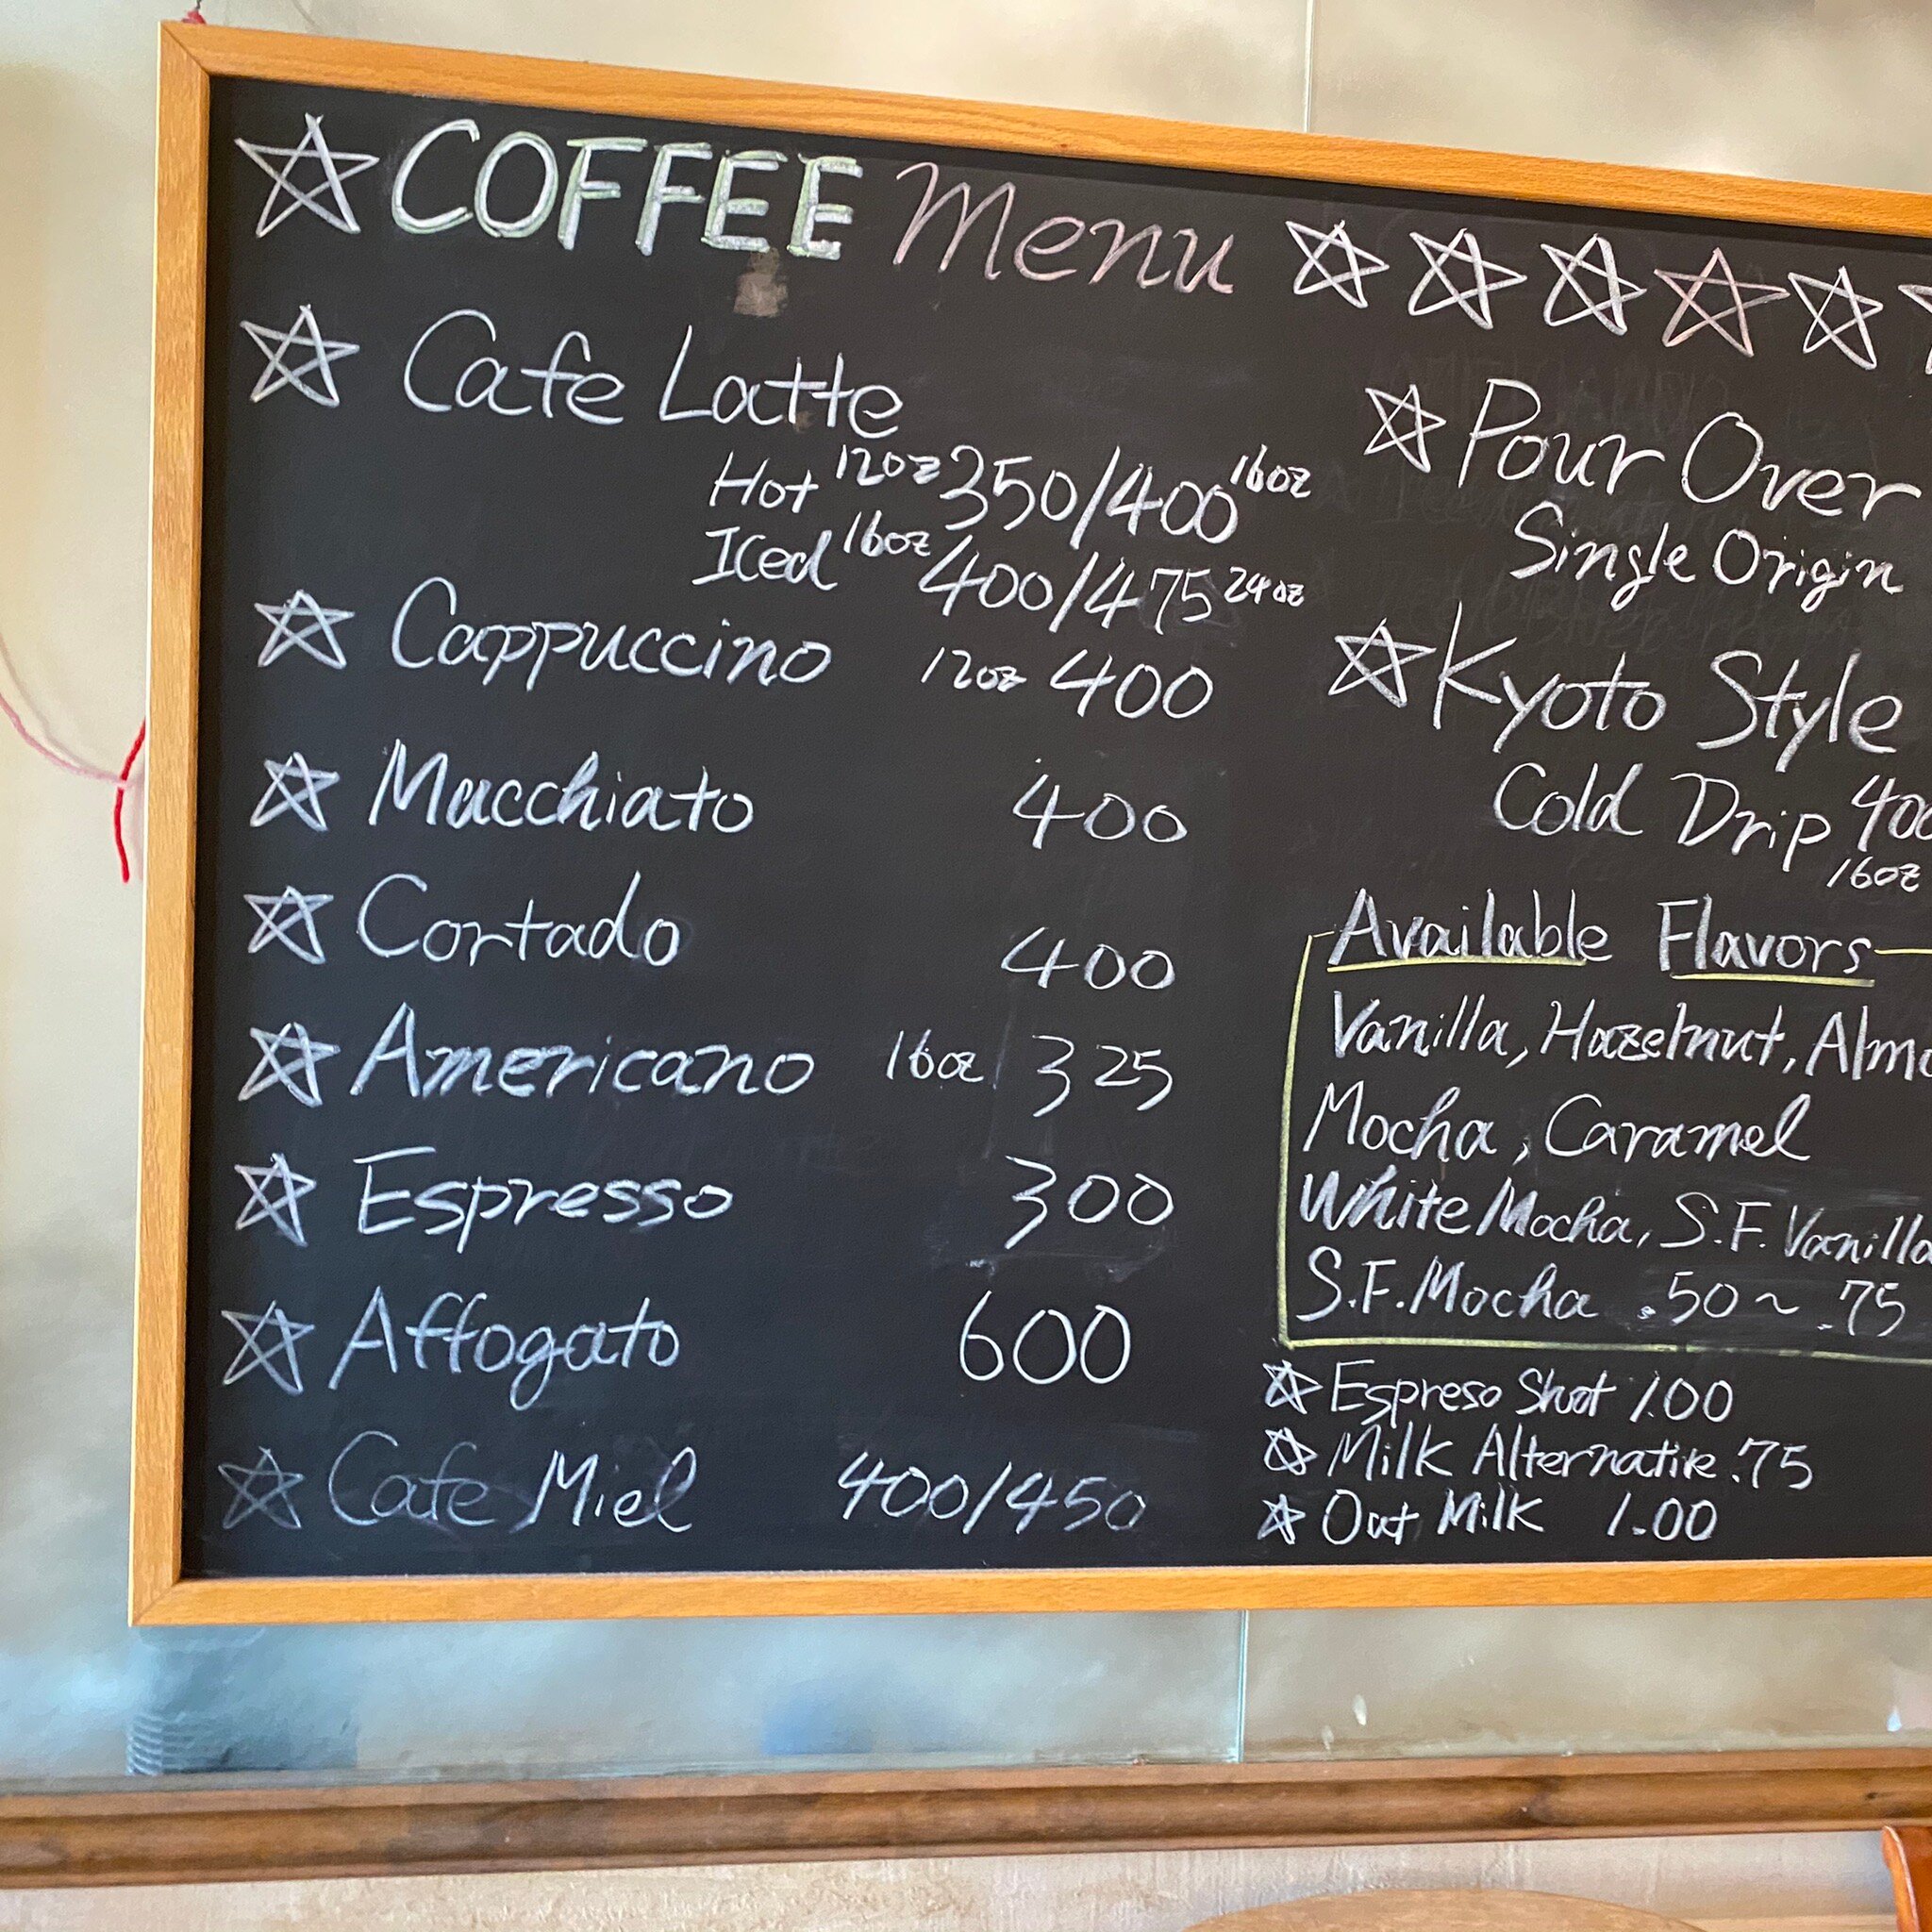 COFFEE Menu
Cafe Latte
Hot 12oz 350/400 16oz
Iced 16oz 400/475 24oz
Cappuccino 12oz 400
Macchiato 400
Cortado 400
Americano 16oz 325
Espresso 300
Affogato 600
Cafe Miel 400/450
Pour Over
Single Origin
Kyoto Style
Cold Drip 400
16oz
Available Flavors
Vanilla, Hazelnut, Almo
Mocha, Caramel
White Mocha, S.F. Vanilla
S.F. Mocha .50~.75
Espreso Shot 1.00
Milk Alternative .75
Oat Milk 1.00